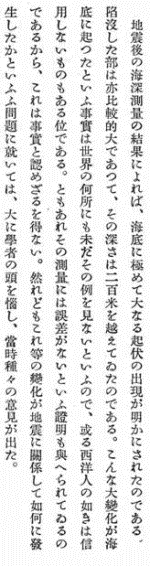 地震後の海深測量の結果によれば、海底に極めて大なる起伏の出現が明かにされたのである。
陷沒した部は亦比較的大であつて、その深さは二百米を越えてゐたのである。こんな大變化が海
底に起つたといふ事實は世界の何所にも未だその例を見ないといふので、或る西洋人の如きは信
用しないものもある位である。ともあれその測量には誤差がないといふ證明も與へられてゐるの
であるから、これは事實と認めざるを得ない。然れどもこれ等の變化が地震に關係して如何に發
生したかといふ問題に就いては、大に學者の頭を惱し、當時種々の意見が出た。